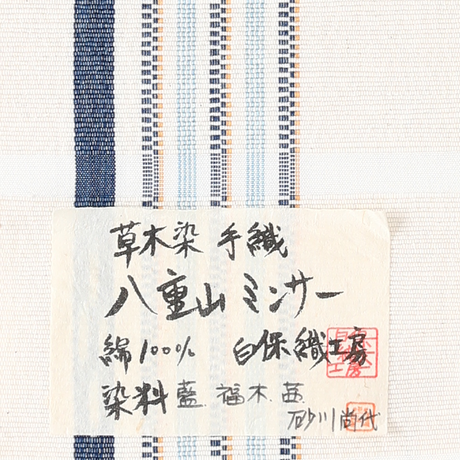 草木染 手織
八重山ミンサー
綿100% 白保織工房
染料 藍 福木 茜
砂川尚代